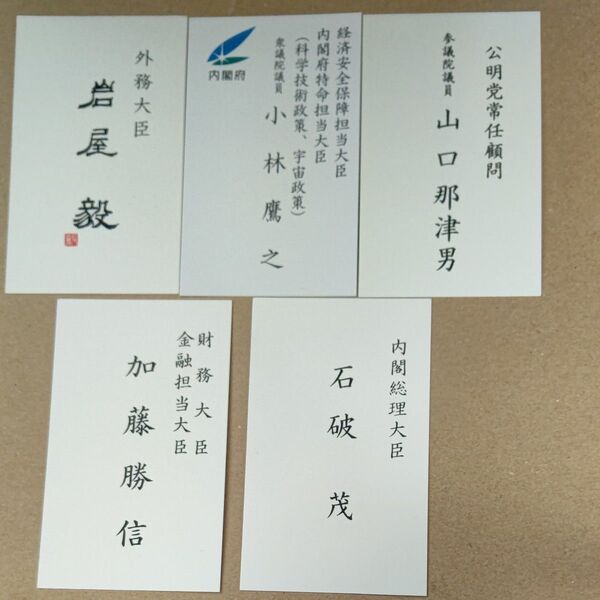 外務大臣
岩屋 毅
内閣府
経済安全保障担当大臣
内閣府特命担当大臣
（科学技術政策、宇宙政策）
衆議院議員 小林鷹之
公明党常任顧問
参議院議員 山口那津男
財務大臣
金融担当大臣
加藤勝信
内閣総理大臣
石破 茂